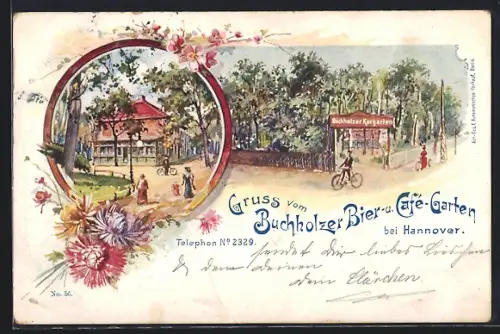 Buchholzer Kurgarten
Gruss vom
Buchholzer Bier- u. Café-Garten
bei Hannover.
Telephon No 2329.
sendet dir liebes
u. dem deinen
dein Clärchen.
No. 56.